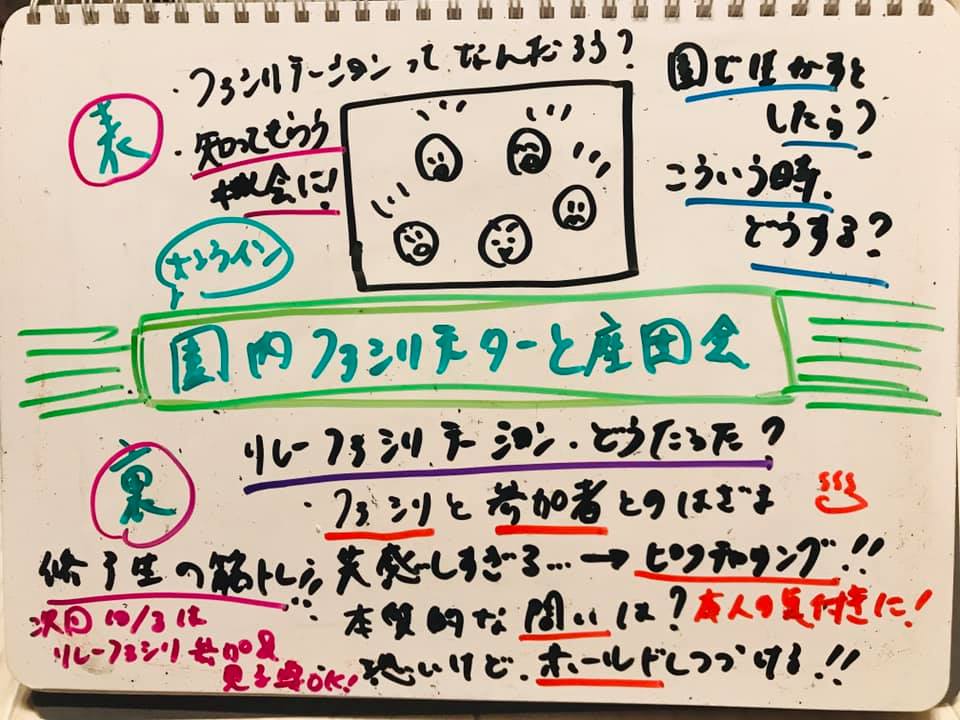 表
・ファシリテーションってなんだろう?
・知ってもらう
機会に!
園で生かすと
したら?
こういう時、
どうする?
オンライン
園内ファシリテーターと座団会
裏
リレーファシリテーション・どうだった?
・ファシリと参加者とのはざま
修了生の筋トレ
共感しすぎる…→ピクチャリング!!
本質的な問いは?本人の気付きに!
恐いけど、ホールドしつづける!!
次回10/3は
リレーファシリ参加&
見る専OK!